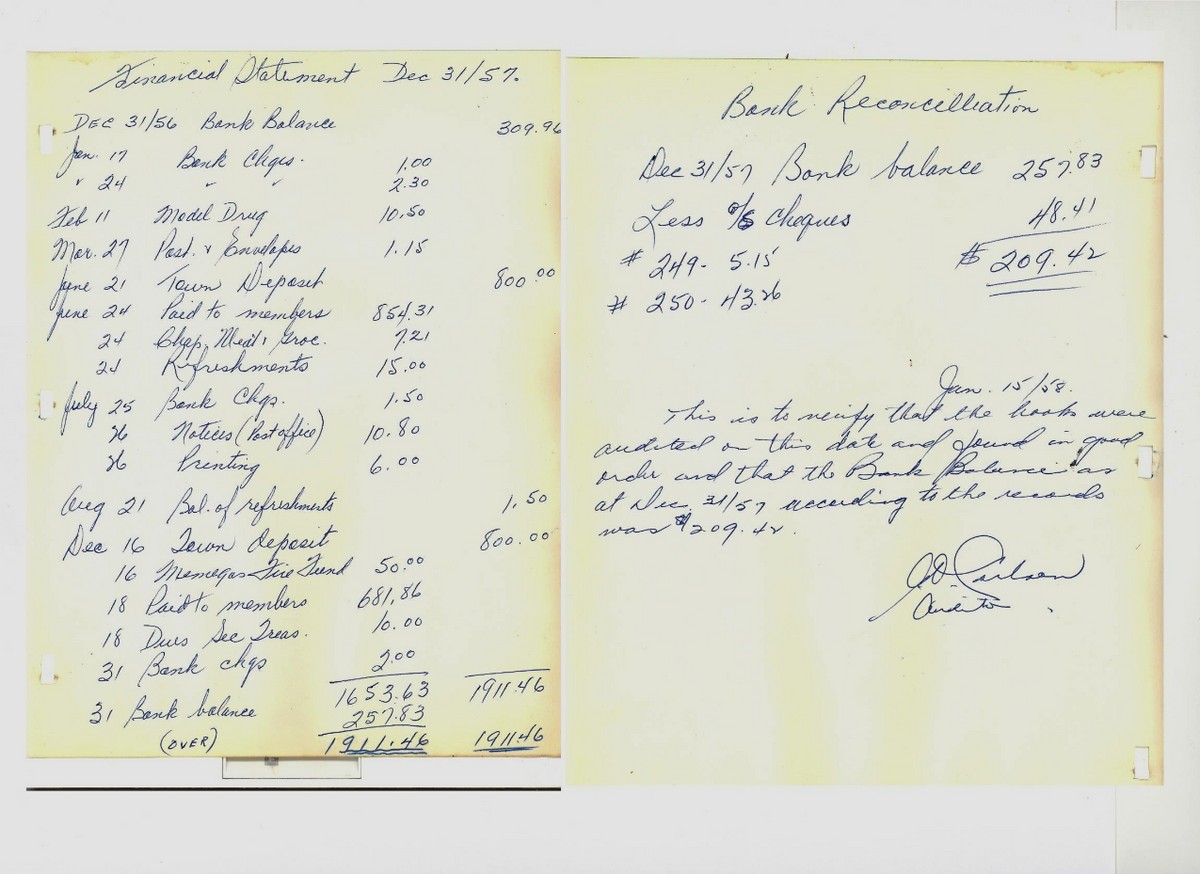 Financial Statement Dec 31/57.
DEC 31/56 Bank Balance 309.96
Jan. 17 Bank Chgs. 1.00
" 24 " " 2.30
Feb 11 Model Drug 10.50
Mar. 27 Post. & Envelopes 1.15
June 21 Town Deposit 800.00
June 24 Paid to members 854.31
24 Chap. Meat & Groc. 7.21
24 Refreshments 15.00
July 25 Bank Chgs. 1.50
26 Notices (Post office) 10.80
26 Printing 6.00
Aug 21 Bal. of refreshments 1.50
Dec 16 Town deposit 800.00
16 Fire Fund 50.00
18 Paid to members 681.86
18 Dues Sec Treas. 10.00
31 Bank chgs 2.00
1653.63 1911.46
31 Bank balance 257.83
(OVER) 1911.46 1911.46
Bank Reconcilliation
Dec 31/57 Bank balance 257.83
Less o/s cheques 48.41
# 249 - 5.15 $ 209.42
# 250 - 43.26
Jan. 15/58.
This is to verify that the books were
audited on this date and found in good
order and that the Bank Balance as
at Dec. 31/57 according to the records
was $209.42.
Carlson
Auditor